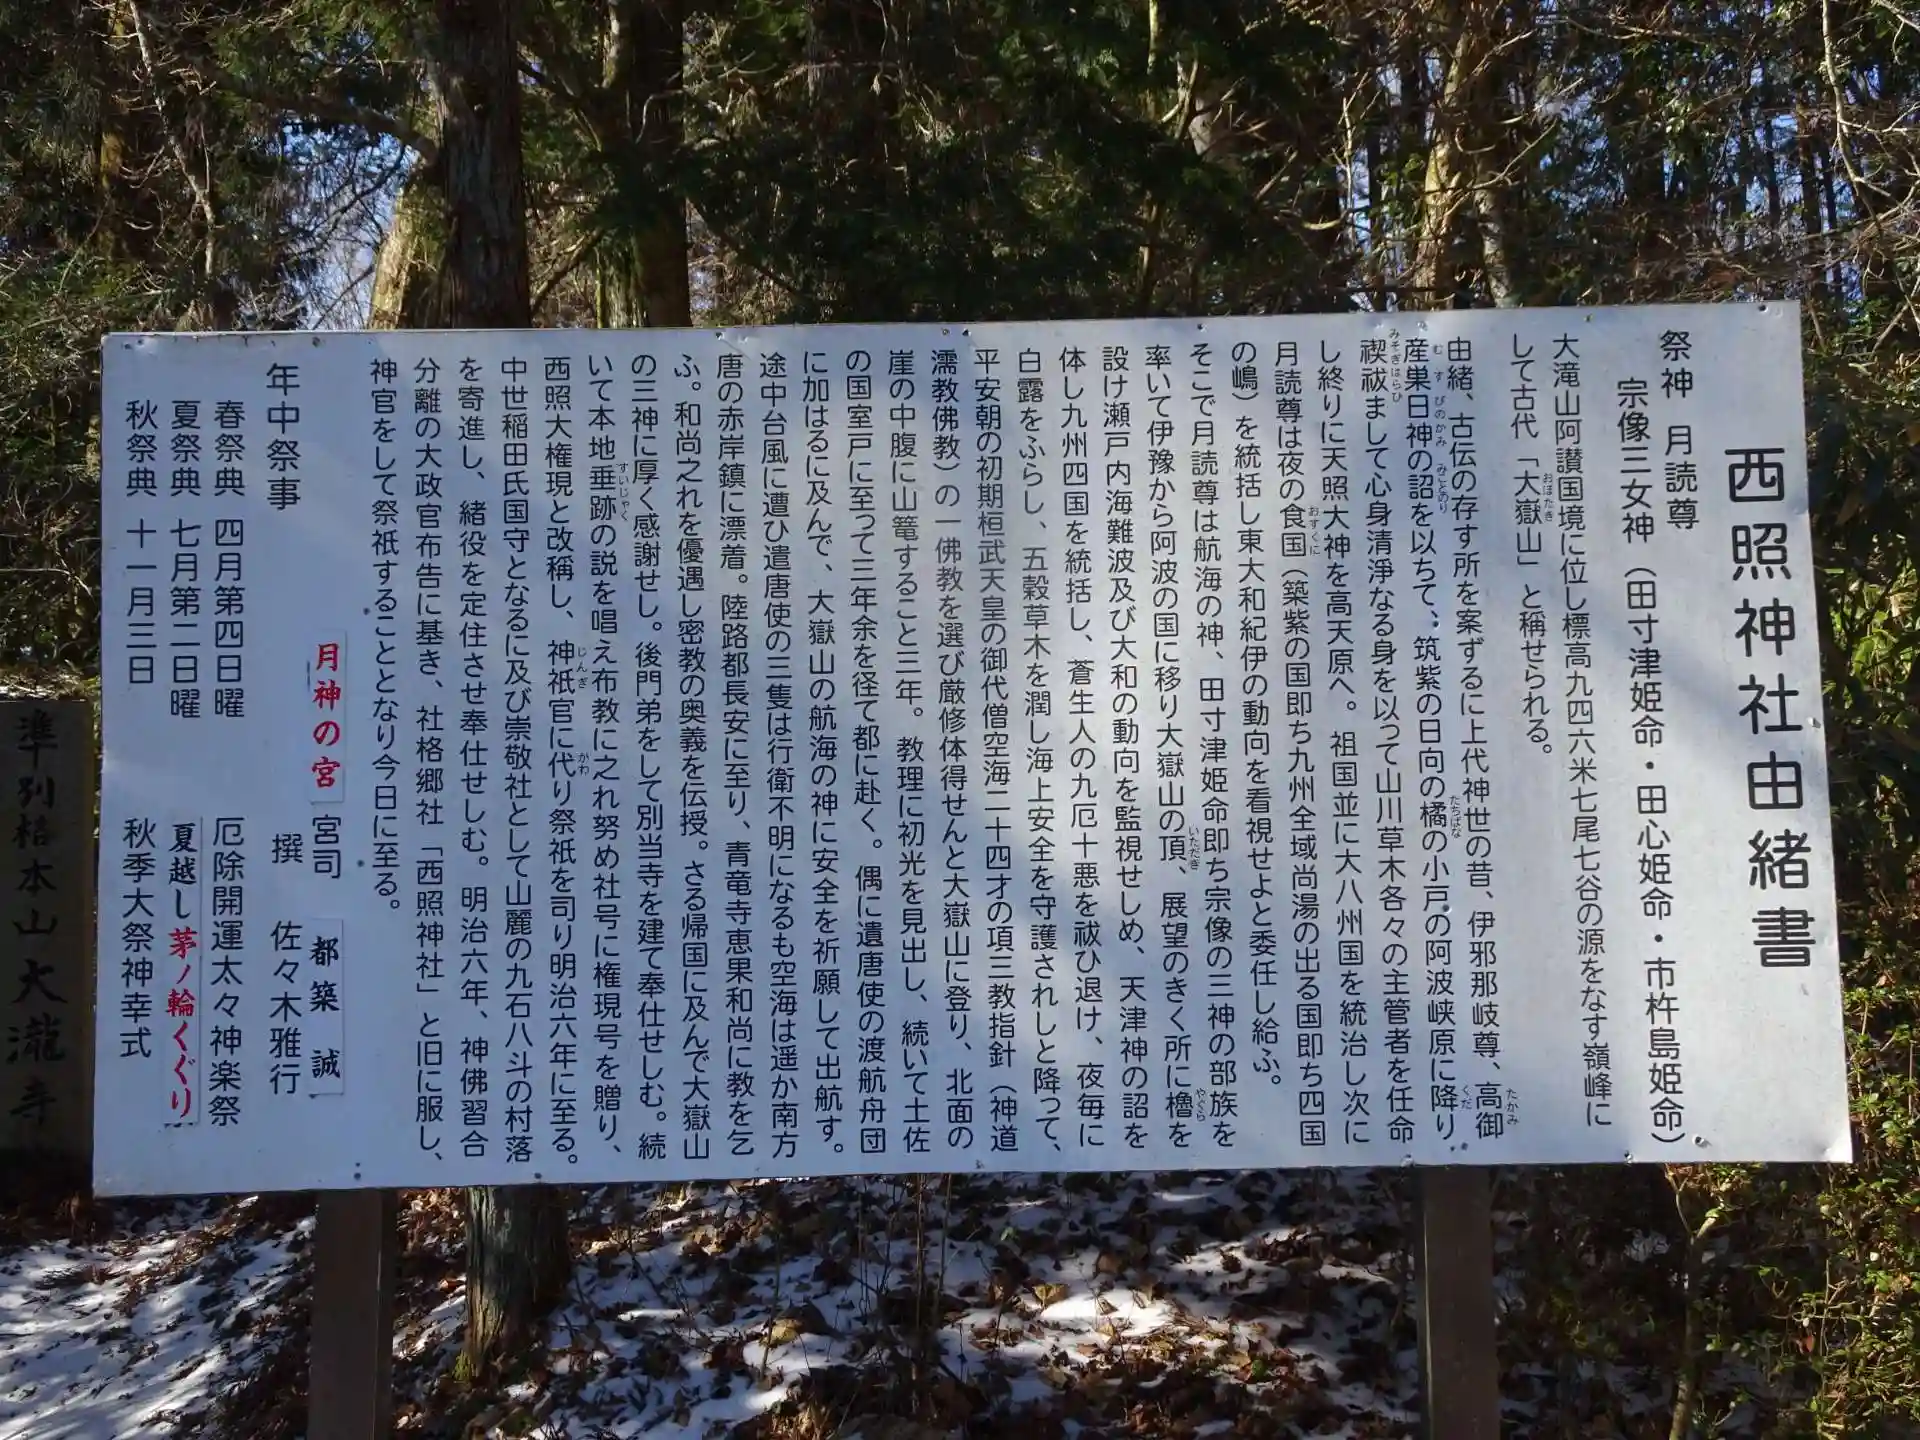 西照神社由緒書
祭神 月読尊
宗像三女神（田寸津姫命・田心姫命・市杵島姫命）
大滝山阿讃国境に位し標高九四六米七尾七谷の源をなす嶺峰に
して古代「大嶽山」と称せられる。
由緒、古伝の存す所を案ずるに上代神世の昔、伊邪那岐尊、高御
産巣日神の詔を以ちて、筑紫の日向の橘の小戸の阿波峡原に降り
禊祓まして心身清淨なる身を以って山川草木各々の主管者を任命
し終りに天照大神を高天原へ。祖国並に大八州国を統治し次に
月読尊は夜の食国（築紫の国即ち九州全域尚湯の出る国即ち四国
の嶋）を統括し東大和紀伊の動向を看視せよと委任し給ふ。
そこで月読尊は航海の神、田寸津姫命即ち宗像の三神の部族を
率いて伊豫から阿波の国に移り大嶽山の頂、展望のきく所に櫓を
設け瀬戸内海難波及び大和の動向を監視せしめ、天津神の詔を
体し九州四国を統括し、蒼生人の九厄十悪を祓ひ退け、夜毎に
白露をふらし、五穀草木を潤し海上安全を守護されしと降って、
平安朝の初期桓武天皇の御代僧空海二十四才の項三教指針（神道
濡教佛教）の一佛教を選び厳修体得せんと大嶽山に登り、北面の
崖の中腹に山篭すること三年。教理に初光を見出し、続いて土佐
の国室戸に至って三年余を径て都に赴く。偶に遺唐使の渡航舟団
に加はるに及んで、大嶽山の航海の神に安全を祈願して出航す。
途中台風に遭ひ遣唐使の三隻は行衛不明になるも空海は遥か南方
唐の赤岸鎮に漂着。陸路都長安に至り、青竜寺恵果和尚に教を乞
ふ。和尚之れを優遇し密教の奥義を伝授。さる帰国に及んで大嶽山
の三神に厚く感謝せし。後門弟をして別当寺を建て奉仕せしむ。続
いて本地垂跡の説を唱え布教に之れ努め社号に権現号を贈り、
西照大権現と改稱し、神祇官に代り祭祇を司り明治六年に至る。
中世稲田氏国守となるに及び崇敬社として山麗の九石八斗の村落
を寄進し、緒役を定住させ奉仕せしむ。明治六年、神佛習合
分離の大政官布告に基き、社格郷社「西照神社」と旧に服し、
神官をして祭祇することとなり今日に至る。
月神の宮 宮司 都築 誠
撰 佐々木雅行
年中祭事
春祭典 四月第四日曜 厄除開運太々神楽祭
夏祭典 七月第二日曜 夏越し茅ノ輪くぐり
秋祭典 十一月三日 秋季大祭神幸式
準別格本山大瀧寺